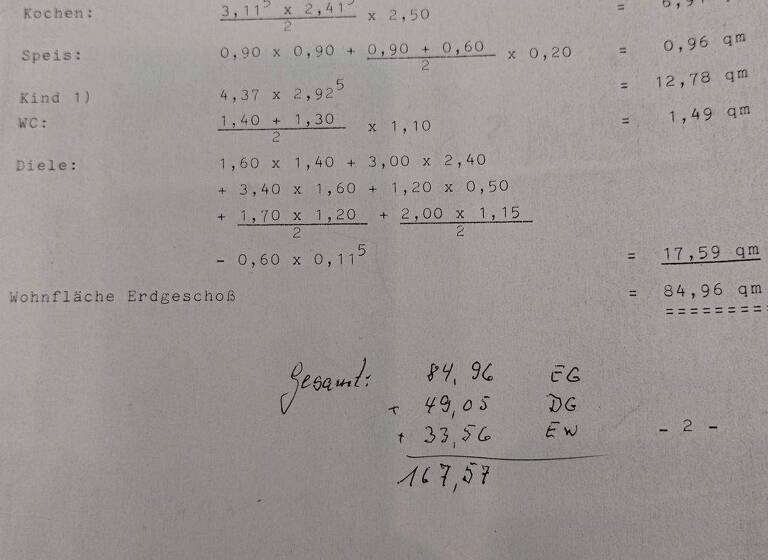 Kochen: 3,11⁵ x 2,41⁵ / 2 x 2,50 =
Speis: 0,90 x 0,90 + 0,90 + 0,60 / 2 x 0,20 = 0,96 qm
Kind 1) 4,37 x 2,92⁵ = 12,78 qm
WC: 1,40 + 1,30 / 2 x 1,10 = 1,49 qm
Diele: 1,60 x 1,40 + 3,00 x 2,40
+ 3,40 x 1,60 + 1,20 x 0,50
+ 1,70 x 1,20 / 2 + 2,00 x 1,15 / 2
- 0,60 x 0,11⁵ = 17,59 qm
Wohnfläche Erdgeschoß = 84,96 qm
=========
Gesamt: 84,96 EG
+ 49,05 DG
+ 33,56 EW
- 2 -
167,57